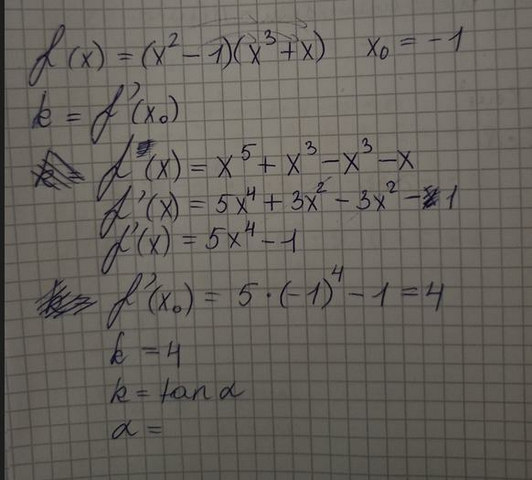 f(x) = (x² - 1)(x³ + x)   x₀ = -1
k = f'(x₀)
f(x) = x⁵ + x³ - x³ - x
f'(x) = 5x⁴ + 3x² - 3x² - 1
f'(x) = 5x⁴ - 1
f'(x₀) = 5 · (-1)⁴ - 1 = 4
k = 4
k = tan α
α =